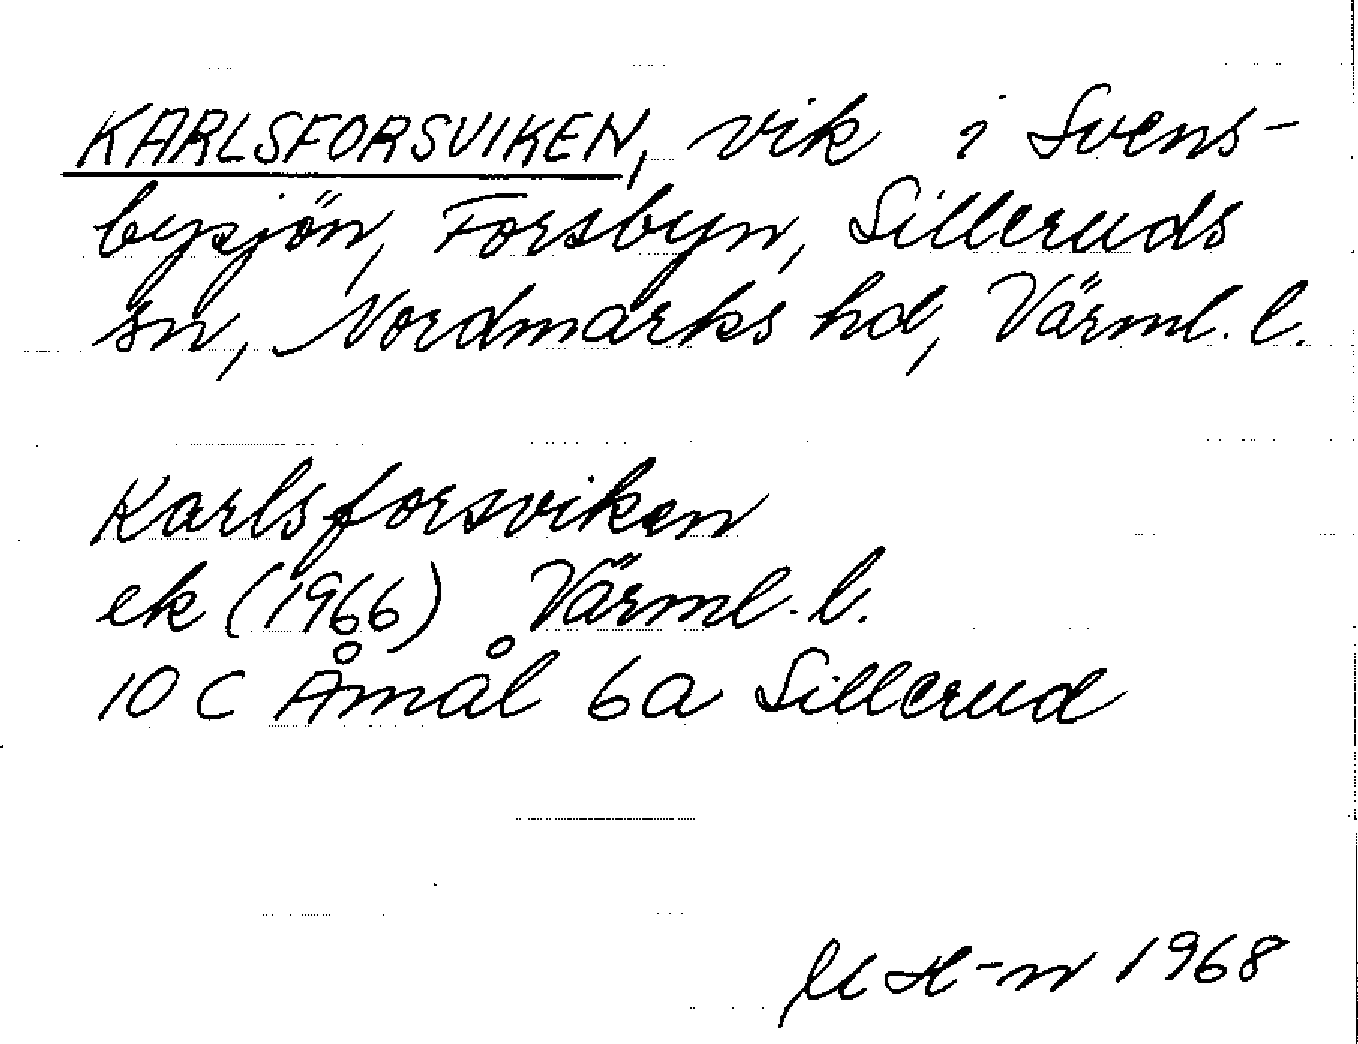 KARLSFORSVIKEN, vik i Svens-
bysjön, Forsbyn, Silleruds
sn, Nordmarks hd, Värml. l.
Karlsforsviken
ek (1966) Värml. l.
10 C Åmål 6a Sillerud
M H-n 1968